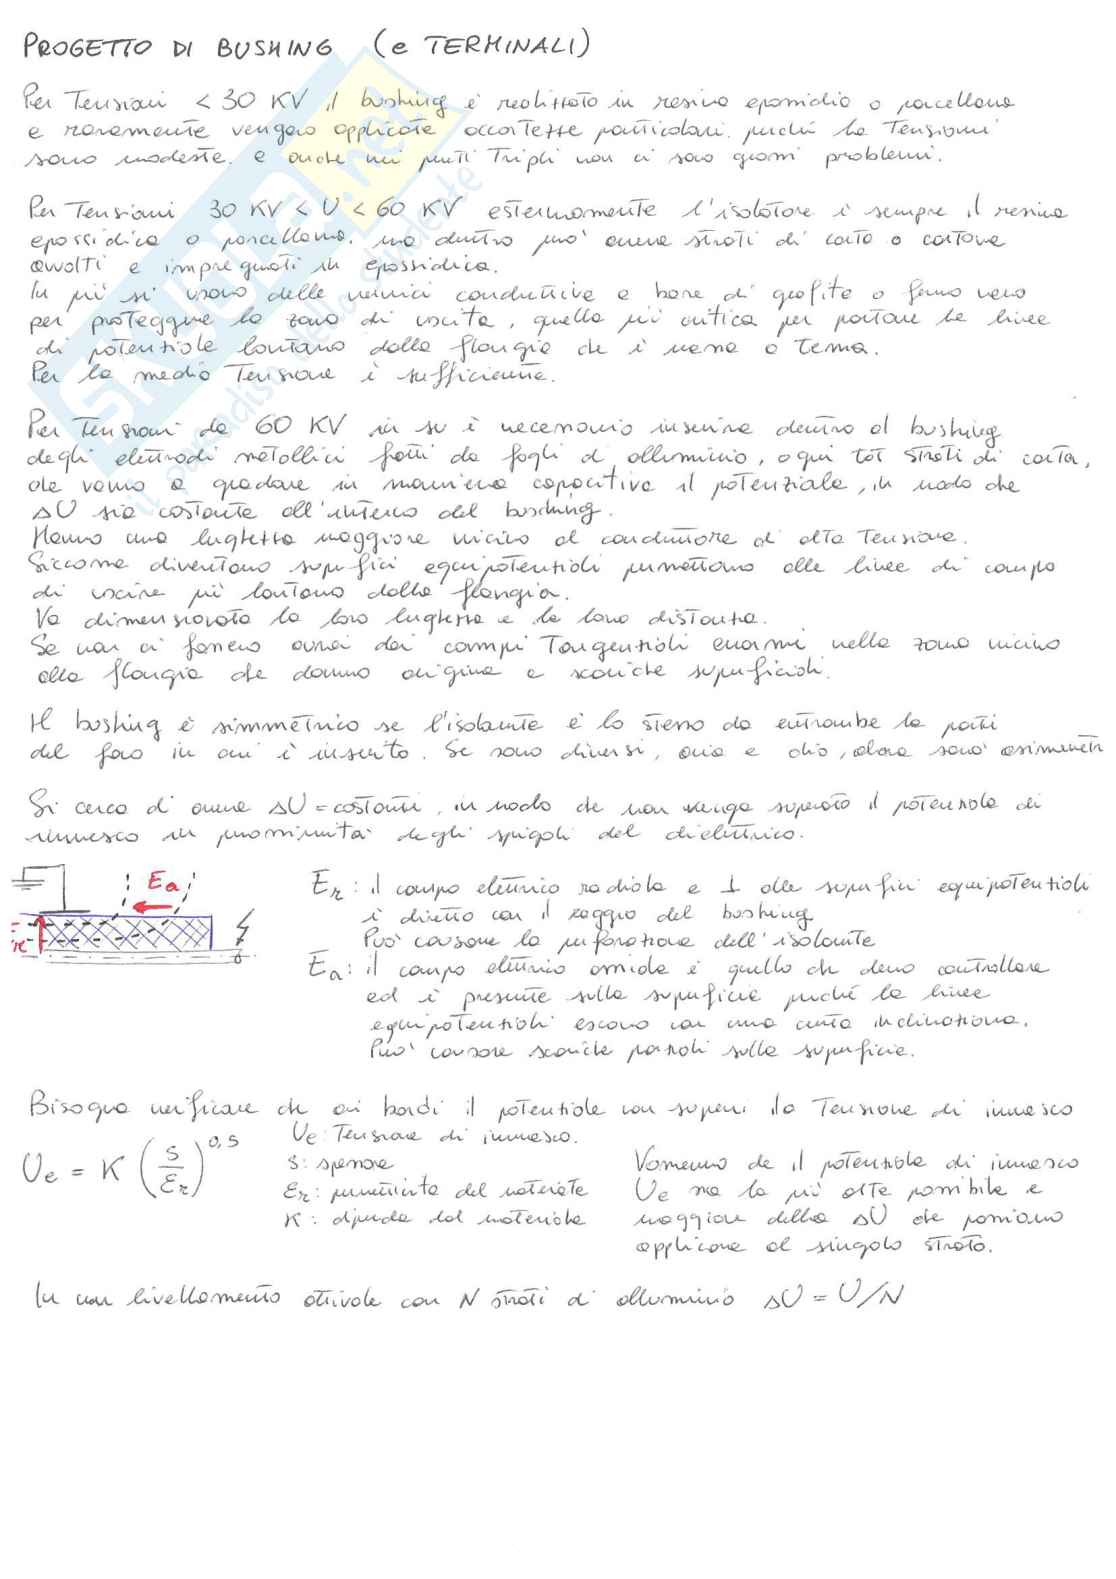 PROGETTO DI BUSHING (e TERMINALI)
Per Tensioni < 30 KV il bushing è realizzato in resina epossidica o porcellana
e raramente vengono applicate accortezze particolari perché le Tensioni
sono modeste. e anche nei punti Tripli non ci sono grossi problemi.
Per Tensioni 30 KV < U < 60 KV esternamente l'isolatore è sempre il resina
epossidica o porcellana, ma dentro può avere strati di carta o cartone
avvolti e impregnati in epossidica.
In più si usano delle vernici conduttive a base di grafite o ferro nero
per proteggere la zona di uscita, quella più critica per portare le linee
di potenziale lontano dalla flangia che è messa a terra.
Per la media Tensione è sufficiente.
Per Tensioni da 60 KV in su è necessario inserire dentro al bushing
degli elettrodi metallici fatti da fogli di alluminio, ogni tot strati di carta,
che vanno a gradare in maniera capacitiva il potenziale, in modo che
ΔU sia costante all'interno del busching.
Hanno una lughezza maggiore vicino al conduttore di alta Tensione.
Siccome diventano superfici equipotenziali permettono alle linee di campo
di uscire più lontano dalla flangia.
Va dimensionata la loro lughezza e la loro distanza.
Se non ci fossero avrei dei campi Tangenziali enormi nella zona vicino
alla flangia che danno origine a scariche superficiali.
Il bushing è simmetrico se l'isolante è lo stesso da entrambe le parti
del foro in cui è inserito. Se sono diversi, aria e olio, allora sarà asimmetri
Si cerca di avere ΔU = costante, in modo che non venga superato il potenziale di
innesco in prossimità degli spigoli del dielettrico.
Ea
Er: il campo elettrico radiale e ⊥ alle superfici equipotenziali
è diretto con il raggio del bushing
Può causare la perforazione dell'isolante
Ea: il campo elettrico assiale è quello che devo controllare
ed è presente sulla superficie perché le linee
equipotenziali escono con una certa inclinazione.
Può causare scariche parziali sulla superficie.
Bisogna verificare che ai bordi il potenziale non superi la Tensione di innesco
Ue = K (S/εr)^0,5
Ue: Tensione di innesco.
S: spessore
εr: permettività del materiale
K: dipende dal materiale
Vorremmo che il potenziale di innesco
Ue sia la più alta possibile e
maggiore della ΔU che possiamo
applicare al singolo strato.
In un livellamento ottimale con N strati di alluminio ΔU = U/N